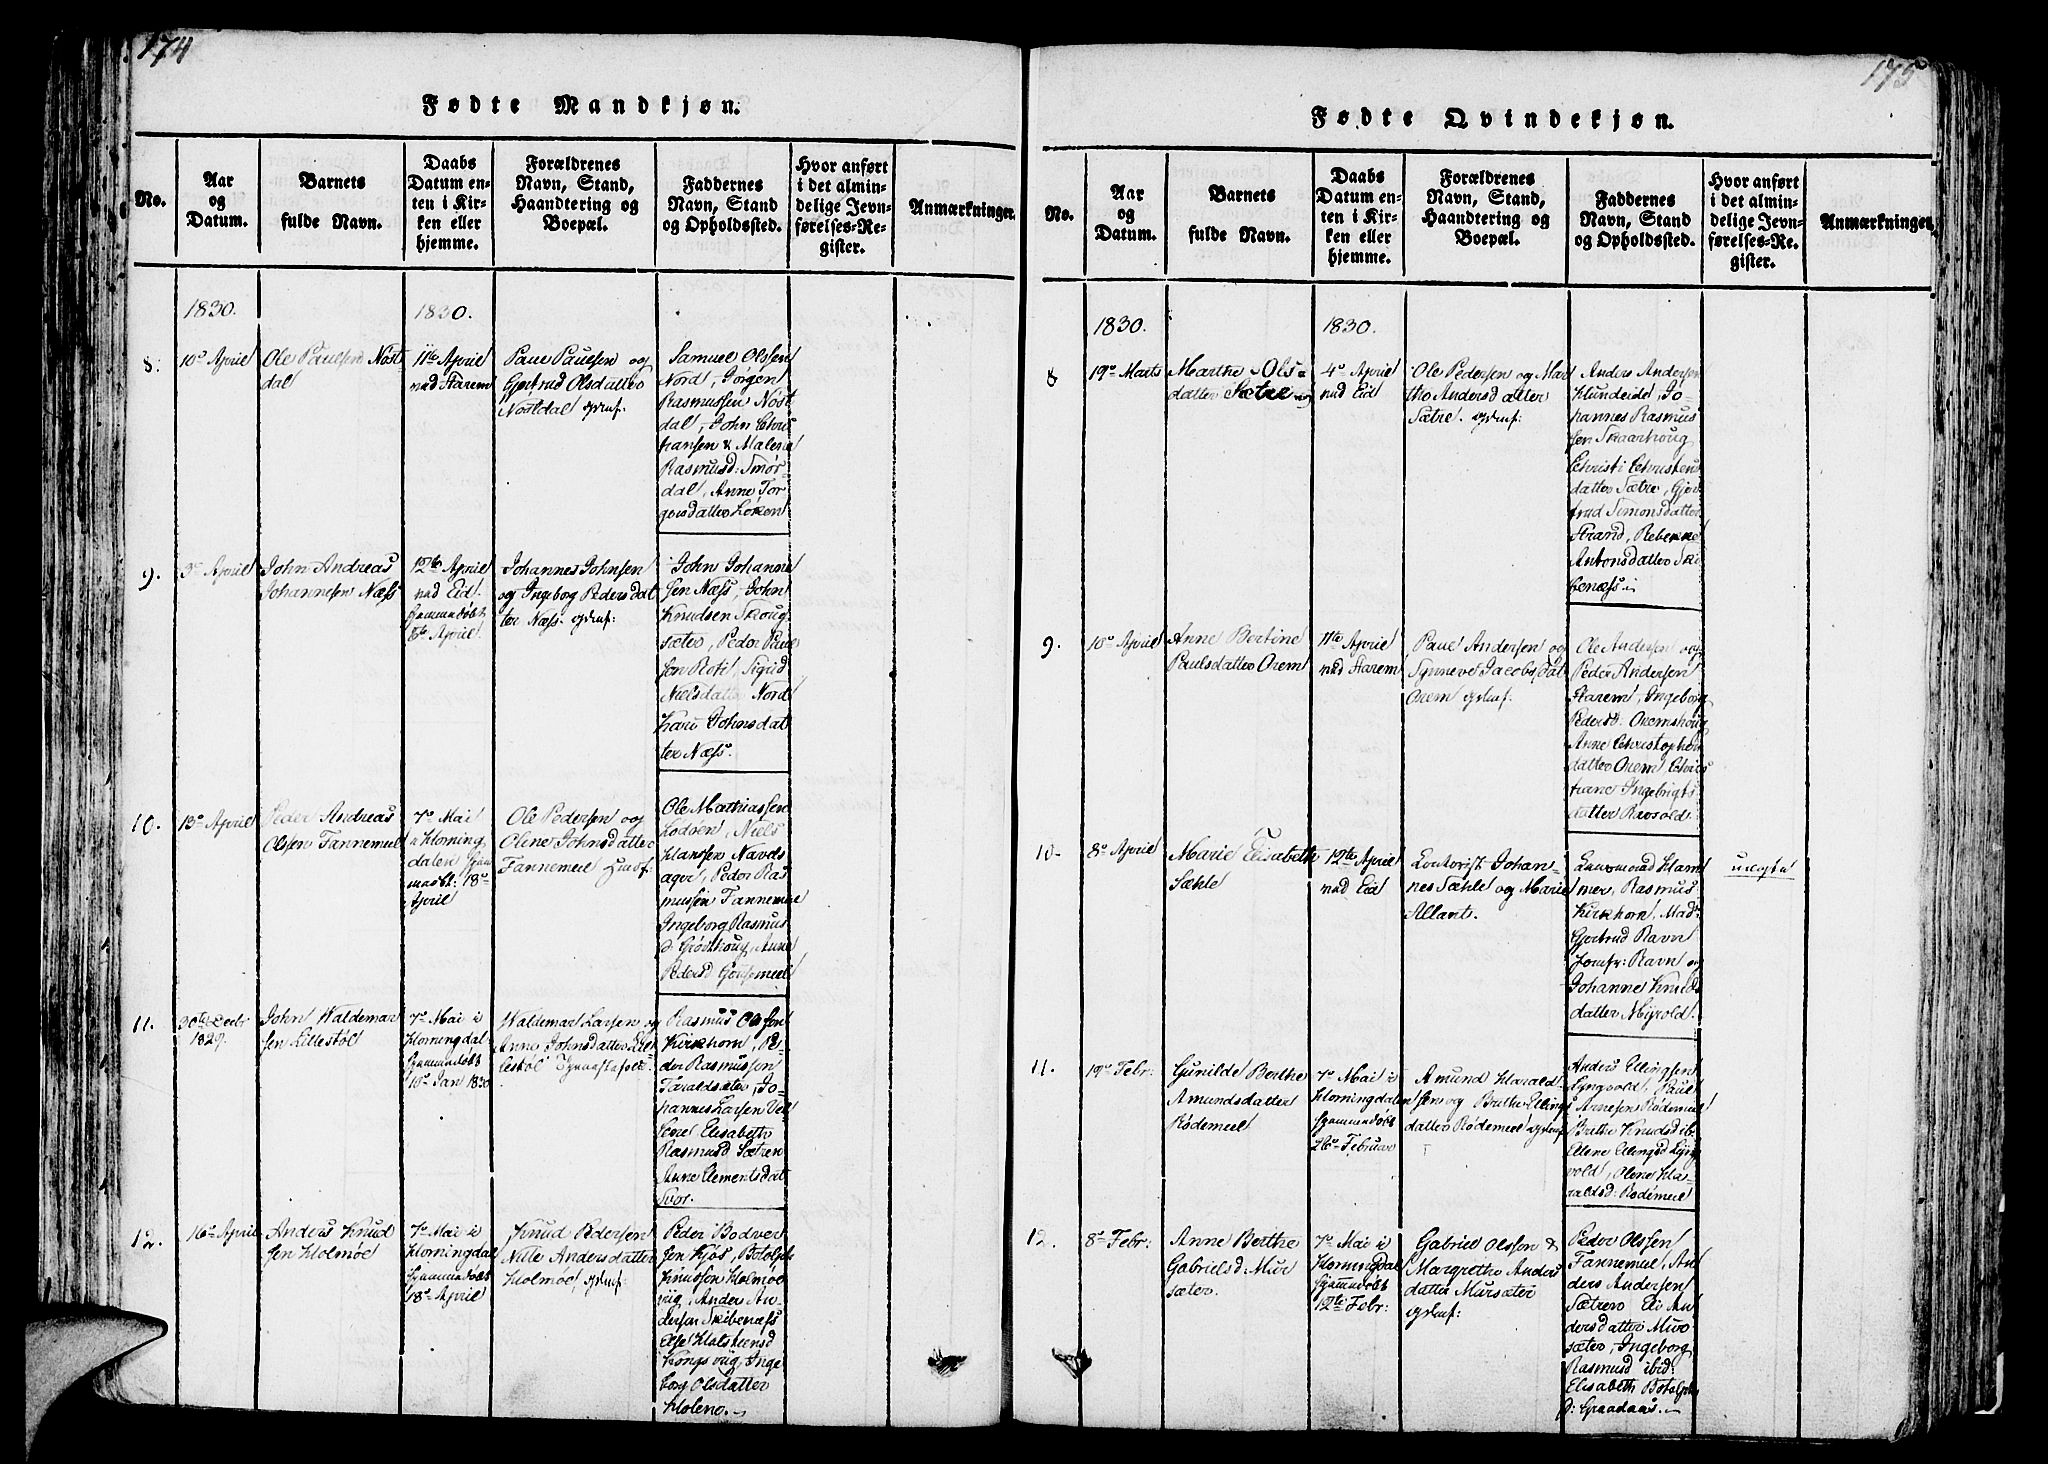 174
Fødte Mandkjøn.
No.
Aar
og
Datum.
Barnets
fulde Navn.
Daabs
Datum en-
ten i Kir-
ken eller
hjemme.
Forældrenes
Navn, Stand,
Haandtering og
Boepæl.
Faddernes
Navn, Stand
og Opholdssted.
Hvor anført
i det almin-
delige Jevn-
førelses-Re-
gister.
Anmærkninger.
1830.
1830.
8.
10de April
Ole Paulsen Nøst
dal
11te April
ved Starem
Paul Paulsen og
Gjertrud Olsdatter
Nøstdal
Samuel Olssen
Nord, Jørgen
Rasmussen Nøst
dal, John Chris
hansen & Malene
Rasmusd: Smør-
dal, Anne Tor
gersdatter Løken
9.
3de April
John Andreas
Johannesen Næss
12te April
ved Eid
April.
Johannes Johnsen
og Ingeborg Pedersdat
ter Næss.
John Johanne
sen Næss, John
Knudsen Skoug
sæter, Peder Paul
sen Roti, Sigrid
Nielsdatter Nord
Kari Johnsdat
ter Næss.
10.
13de April
Peder Andreas
Olsen Tannemeel
7de Mai
i Horning
dalen
18de
April
Ole Pedersen og
Olene Johnsdatter
Tannemeel
Ole Mathiassen
Lødøen, Niels
Hanssen Navels
ager, Peder Ras
mussen Tannemeel
Ingeborg Rasmus
d: Grodthoug, Anne
Pedersd
11.
30te Decbr
1829.
John Waldemar
sen Lillestøl
7de Mai i
Horningdal
hjemmedøbt
10de Jan 1830
Waldemar Larsen og
Anne Johnsdatter Lil
lestøl
Rasmus Olsson
Kirkhorn, Pe-
der Rasmussen
Taraldsæter, Jo
hannes Larsen
Elisabeth
Rasmusd Sætren
Anne Clementsdat
12.
16de April
Anders Knud
sen Holmøe
7de Mai i
Horningdal
hjemmedøbt
18de April
Knud Pedersen
Nille Andersdatter
Holmøe,
Peder Bodver
sen Hjøs, Botolph
Knussen Holmøe
viig, Anders An-
dersen Skibenæss
Else Halsteensd
Kongsviig, Inge
borg Olsdatter
Holene.
175
Fødte Qvindekjøn.
No.
Aar
og
Datum.
Barnets
fulde Navn.
Daabs
Datum en-
ten i Kir-
ken eller
hjemme.
Forældrenes
Navn, Stand,
Haandtering og
Boepæl.
Faddernes
Navn, Stand
og Opholdssted.
Hvor anført
i det almin-
delige Jevn-
førelses-Re-
gister.
Anmærkninger.
1830.
1830.
8
19de Marts
Marthe Ols-
datter Sætre
4de April
ved Eid
Ole Pedersen og Mar
the Andersdatter
Sætre.
Anders Andersen
Hundeide, Jo-
hannes Rasmus
sen Skaarhoug
Christi Christens
datter Sætre, Gjer
trud Simonsdatter
Strand, Rebekke
Antonsdatter Ski
benæss
9.
10de April
Anne Bertine
Paulsdatter Orem
11te April
ved Starem
Paul Andersen og
Synneve Jacobsdat
Orem
Ole Andersen og
Peder Andersen
Starem, Ingeborg
Pedersd: Oremshoug
Anne Christophers
datter Orem, Chris
tiane Ingebrigts
datter Ravsold.
10.
8de April
Marie Elisabeth
Sæhle
12te April
ved Eid
Contorist Johan-
nes Sæhle og Marie
Allant.
Ham
mer, Rasmus
Kirkhorn, Mad:
Gjertrud Ravn
Jomfr: Ravn og
Johanne Knuds
datter Myrold.
uægte
11.
19de Febr:
Gunilde Berthe
Amundsdatter
Rødemeel
7de Mai i
Horningdalen
hjemmedøbt
26de Februar
Amund Harald
sen og Brithe Ellings
datter Rødemeel
Anders Ellingsen
Lyngvold, Paul
Arnesen Rødemeel
Brithe Knudsd ib:
Elene Ellingsd Lyng
vold, Olene Ha-
raldsd: Rødemeel
12.
8de Febr:
Anne Berthe
Gabrielsd: Mur
sæter.
7de Mai i
Horningdal
hjemmedøbt
12te Febr:
Gabriel Olsson &
Margrethe Anders
datter Mursæter
Peder Olssen
Tannemeel, An
ders Andersen
Sætren Eli An
dersdatter Mur
sæter, Ingeborg
Rasmusd ibid:
Elisabeth Botolph
d: Graadaas.